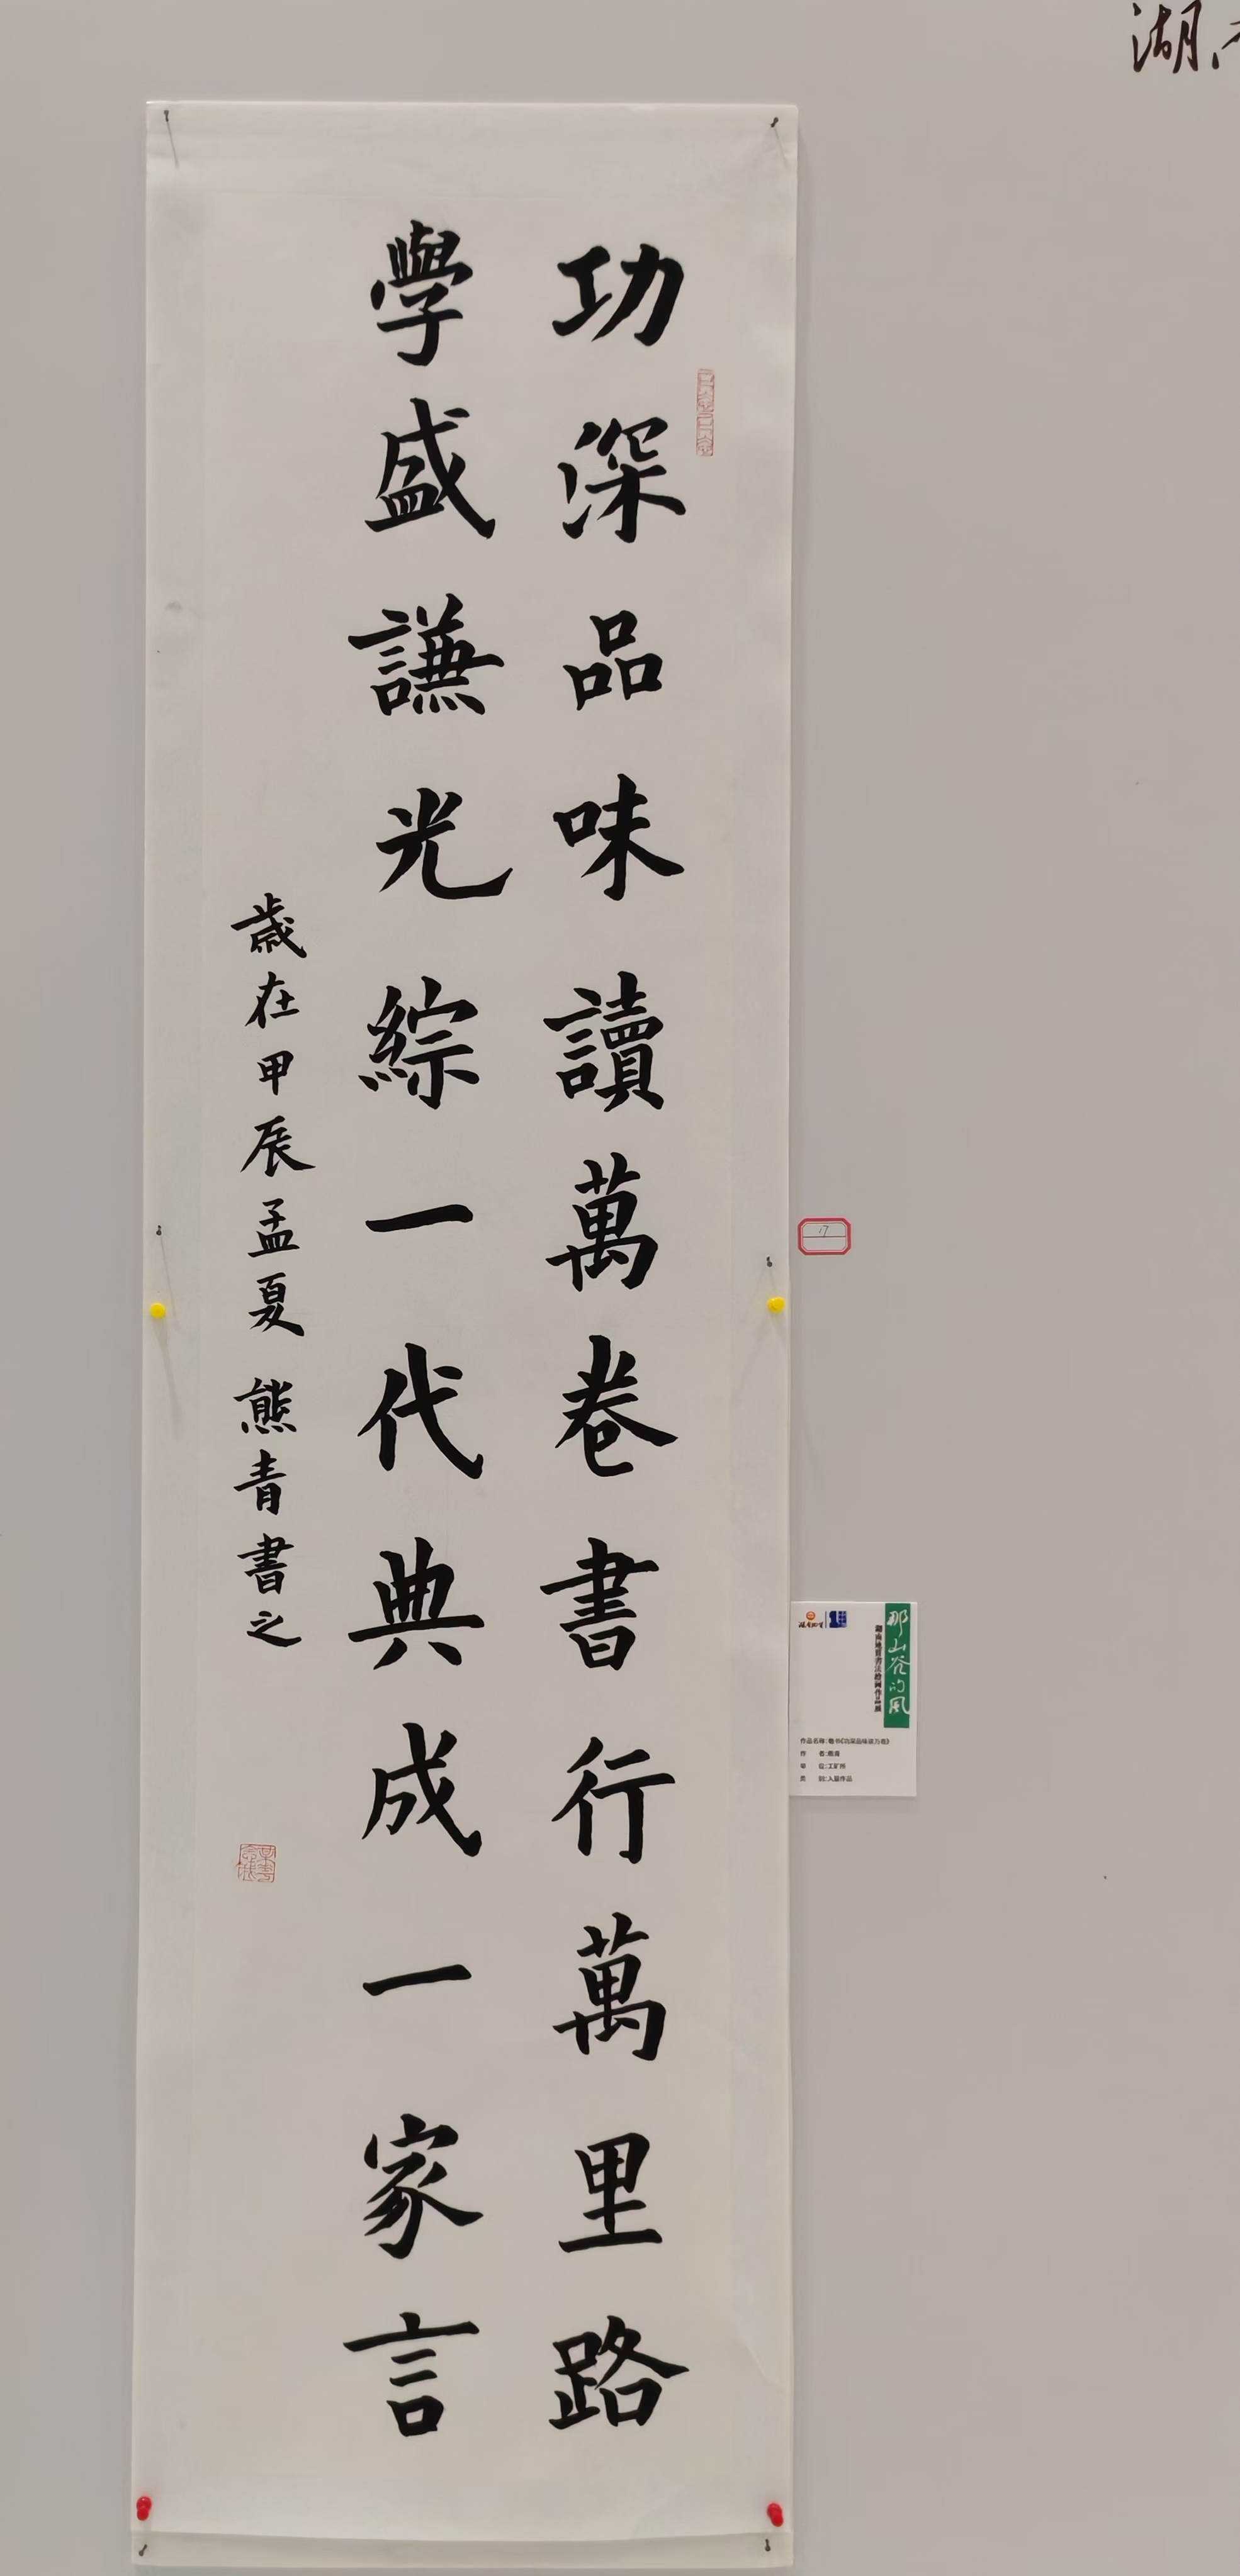 功深品味讀萬卷書行萬里路
學盛謙光綜一代典成一家言
歲在甲辰孟夏 熊青書之
湖
17
那山谷的风
湖南地质书法绘画作品展
作品名称:楷书《功深品味读万卷》
作 者:熊青
单 位:工矿所
类 别:入展作品